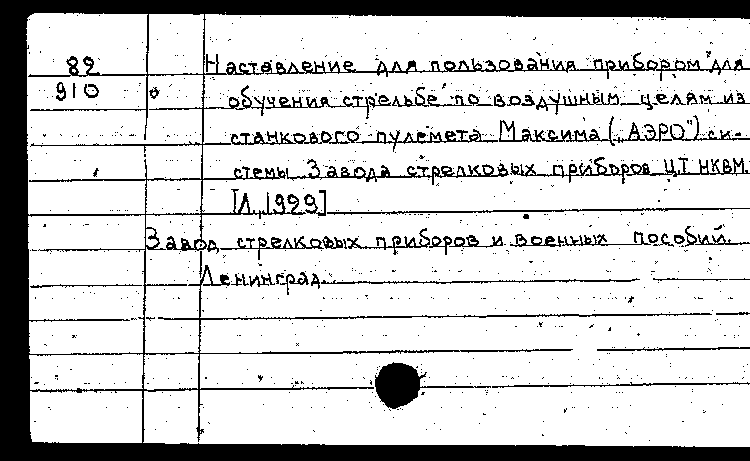 82 Наставление для пользования прибором для
910 обучения стрельбе по воздушным целям из
станкового пулемета Максима („АЭРО") си-
стемы Завода стрелковых приборов Ц.Т НКВМ.
[Л., 1929]
Завод стрелковых приборов и военных пособий.
Ленинград.